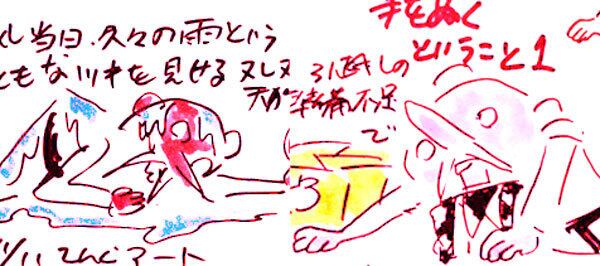 し当日、久々の雨という
ともなツキを見せるヌレヌ
天が
手をぬく
ということ1
引越しの
準備不足
で
31
てんぐアート